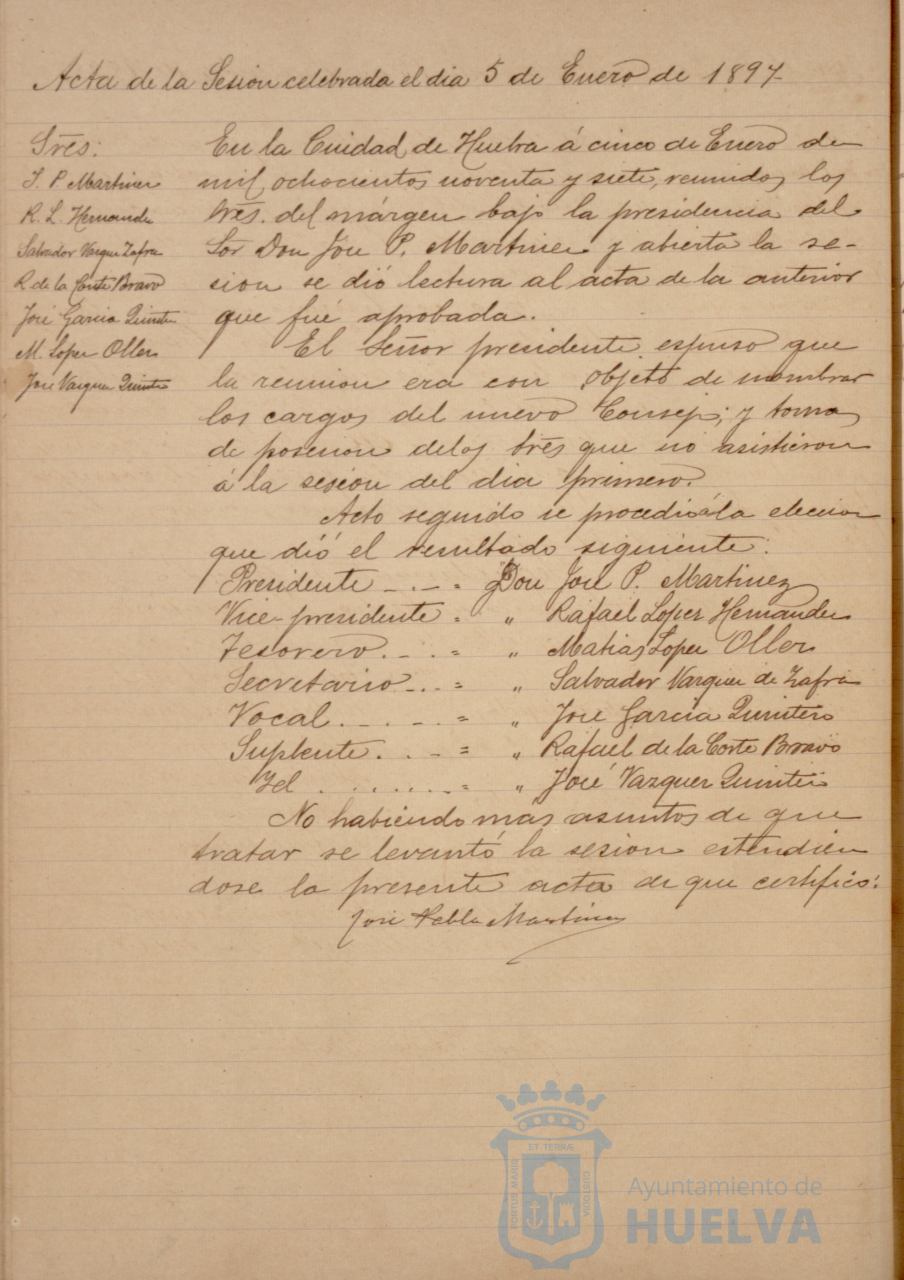 Acta de la Sesion celebrada el dia 5 de Enero de 1897
Sres:
J. P. Martinez
R. L. Hernandez
Salvador Vazquez Zafra
R. de la Corte Bravo
José Garcia Quintero
M. Lopez Oller
José Vazquez Quintero
En la Ciudad de Huelva á cinco de Enero de
mil ochocientos noventa y siete, reunidos los
Sres. del márgen bajo la presidencia del
Sor Don Jose P. Martinez y abierta la se-
sion se dió lectura al acta de la anterior
que fué aprobada.
El Señor presidente espuso que
la reunion era con objeto de nombrar
los cargos del nuevo Consejo; y toma
de posesion delos Sres que no asistieron
á la sesion del dia primero.
Acto seguido se procedió á la eleccion
que dió el resultado siguiente:
Presidente - . - = Don Jose P. Martinez
Vice-presidente = " Rafael Lopez Hernandez
Tesorero. - . - = " Matias Lopez Oller
Secretario - . . = " Salvador Vazquez de Zafra
Vocal. - . - . - = " Jose Garcia Quintero
Suplente. . . - = " Rafael de la Corte Bravo
Id . . . . . . . - = " José Vazquez Quintero
No habiendo mas asuntos de que
tratar se levantó la sesion estendien
dose la presente acta de que certifico:
José Pablo Martinez
ET TERRÆ
PORTUS MARIS
CUSTODIA
Ayuntamiento de
HUELVA